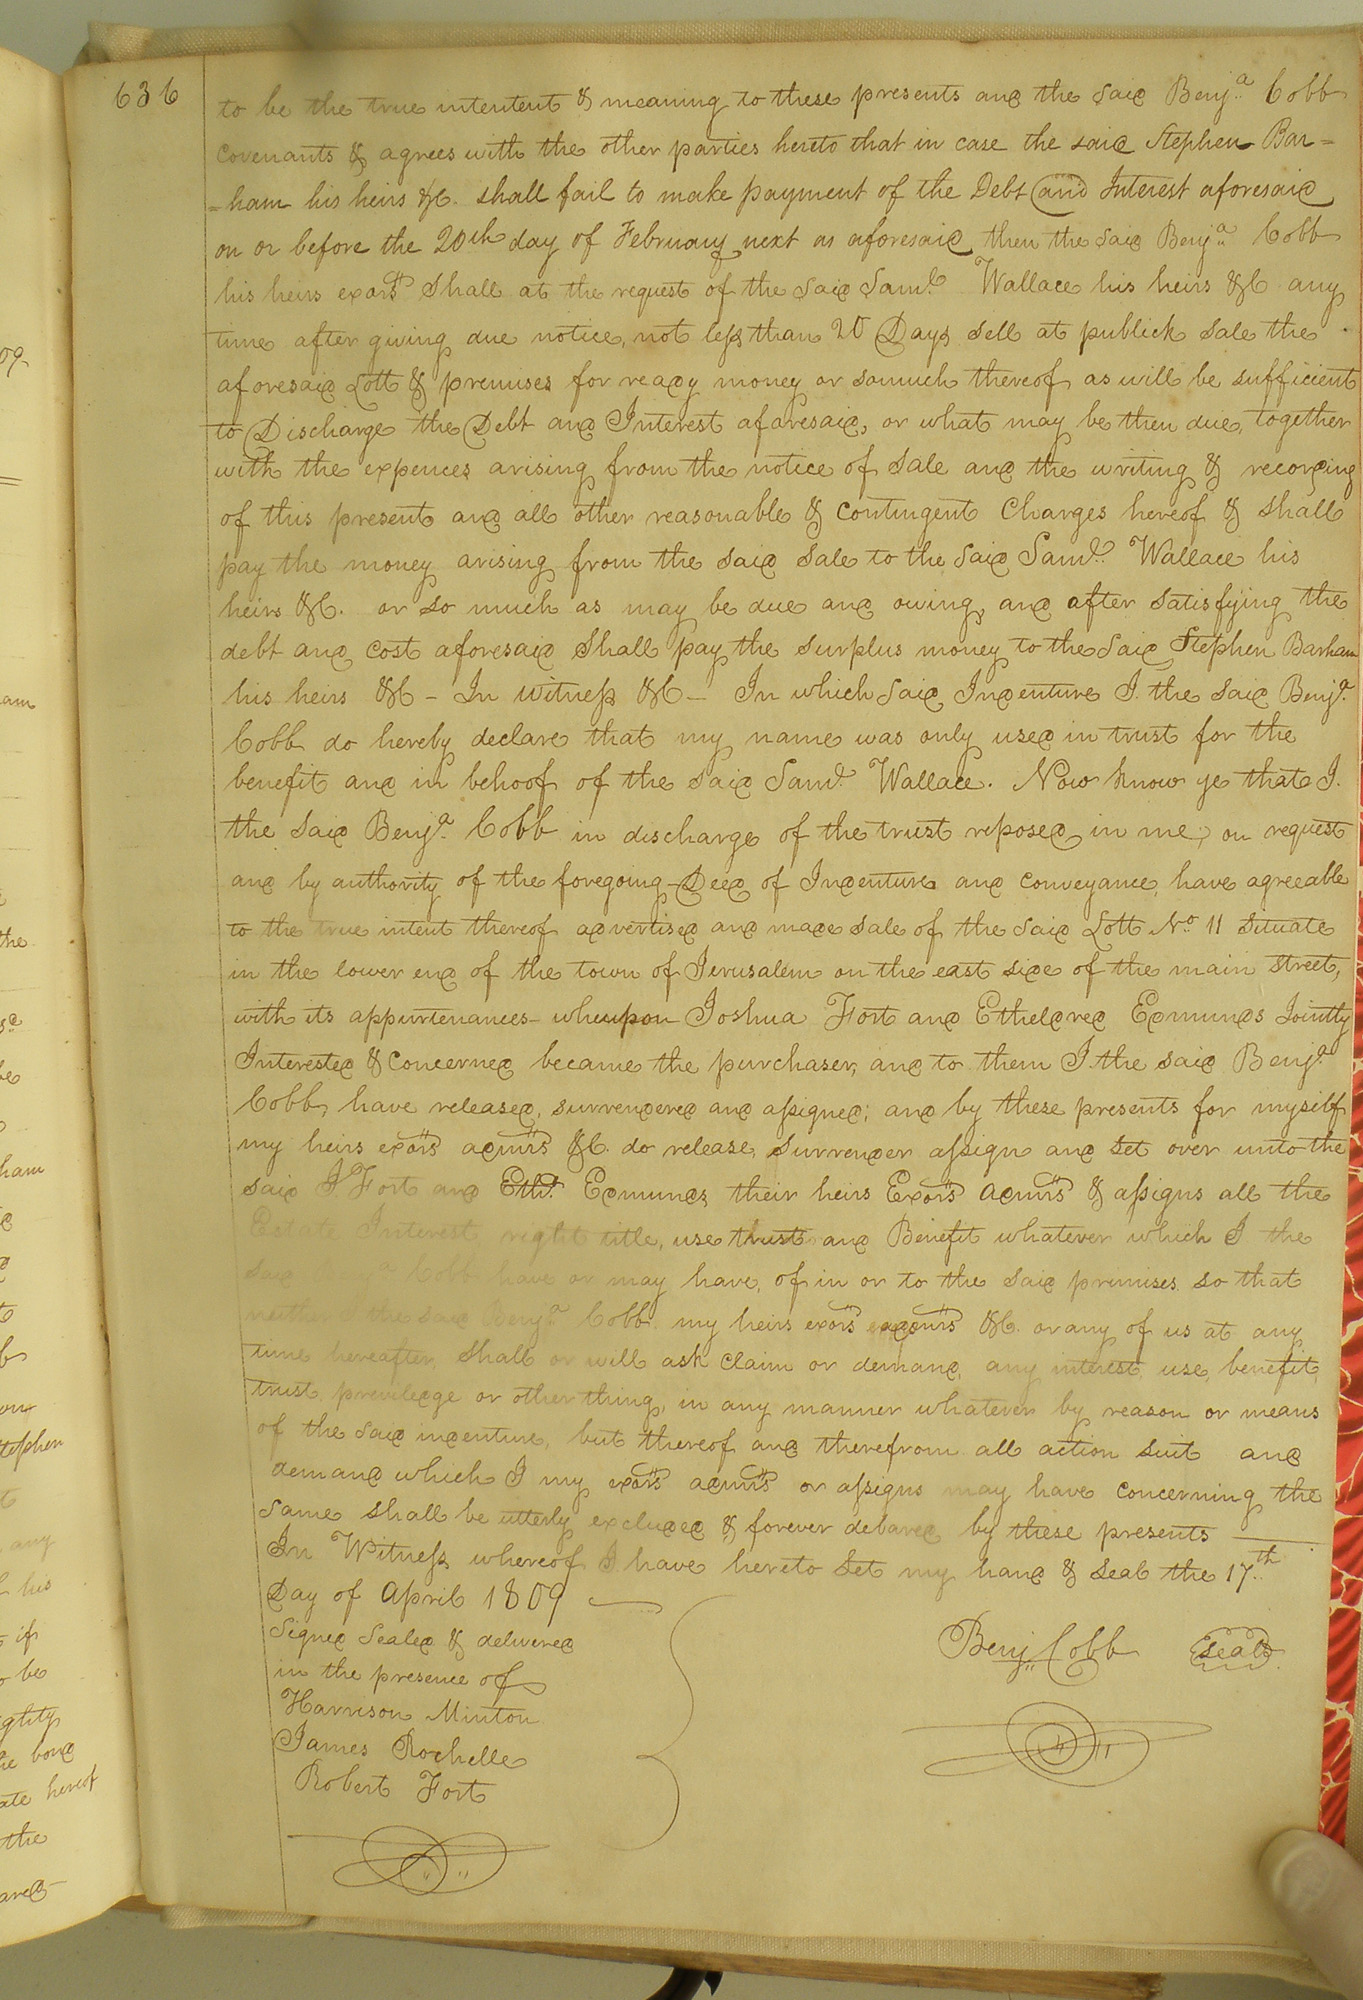 636
to be the true intentent & meaning to these presents and the said Benja. Cobb
covenants & agrees with the other parties hereto that in case the said Stephen Bar=
=ham his heirs &C. shall fail to make payment of the Debt and Interest aforesaid
on or before the 20th day of February next as aforesaid then the said Benja. Cobb
his heirs exors Shall at the request of the said Saml. Wallace his heirs &C any
time after giving due notice, not less than 20 Days sell at publick sale the
aforesaid Lott & premises for ready money or somuch thereof as will be sufficient
to Discharge the Debt and Interest aforesaid, or what may be then due, together
with the expences arising from the notice of sale and the writing & recording
of this present and all other reasonable & contingent Charges hereof & shall
pay the money arising from the said sale to the said Saml. Wallace his
heirs &C. or so much as may be due and owing, and after satisfying the
debt and cost aforesaid shall pay the surplus money to the said Stephen Barham
his heirs &C - In witness &C - In which said Indenture I. the said Benja.
Cobb do hereby declare that my name was only used in trust for the
benefit and in behoof of the said Saml. Wallace. Now know ye that I.
the said Benja. Cobb in discharge of the trust reposed in me, on request
and by authority of the foregoing Deed of Indenture and conveyance, have agreeable
to the true intent thereof advertised and made sale of the said Lott No. 11 situate
in the lower end of the town of Jerusalem on the east side of the main street,
with its appurtenances - whereupon Joshua Fort and Etheldred Edmunds Jointly
Interested & concerned became the purchaser, and to them I the said Benja.
Cobb, have released, surrendered and assigned; and by these presents for myself
my heirs exors admrs &C. do release, surrender assign and set over unto the
said J Fort and Ethd. Edmunds, their heirs Exors admrs & assigns all the
Estate Interest right title, use trust and Benefit whatever which I the
said Cobb have or may have, of in or to the said premises so that
neither I the said Benja. Cobb my heirs exors admrs &C. or any of us at any
time hereafter shall or will ask claim or demand, any interest, use, benefit,
trust, previledge or other thing, in any manner whatever by reason or means
of the said indenture, but thereof and therefrom all action suit and
demand which I my exors admrs or assigns may have concerning the
same shall be utterly excluded & forever debared by these presents ——
In Witness whereof I have hereto set my hand & seal the 17th.
Day of April 1809
Signed Sealed & delivered
in the presence of
Harrison Minton
James Rochelle
Robert Fort
Benj Cobb Seal